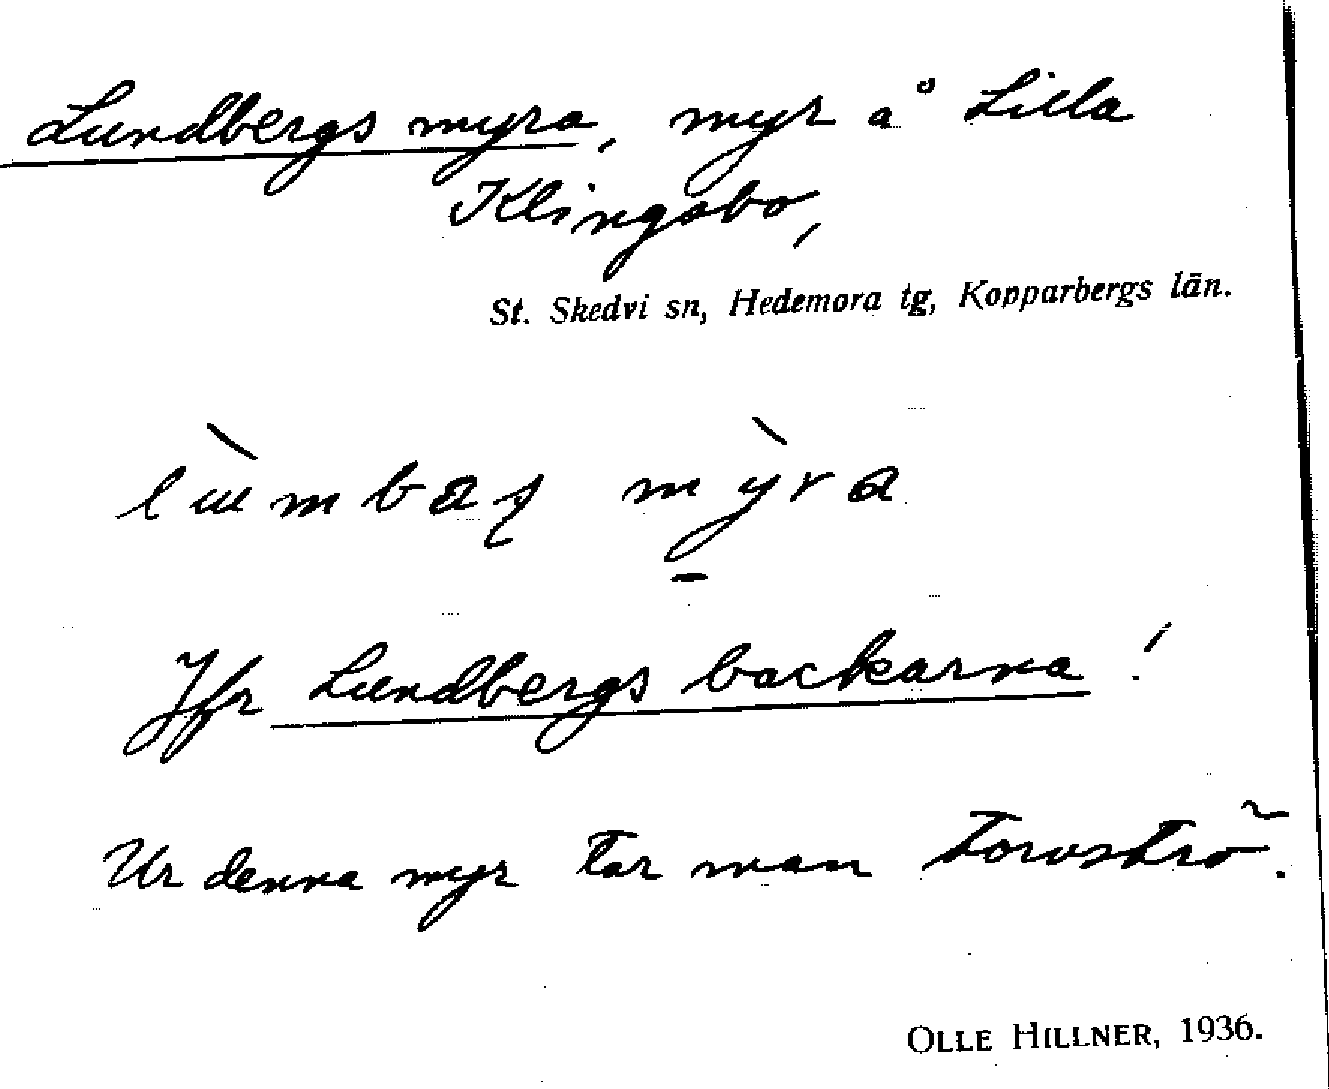 Lundbergs myra, myr å Lilla
Klingsbo,
St. Skedvi sn, Hedemora tg, Kopparbergs län.
Jfr Lundbergs backarna!
Ur denna myr tar man torvströ.
OLLE HILLNER, 1936.